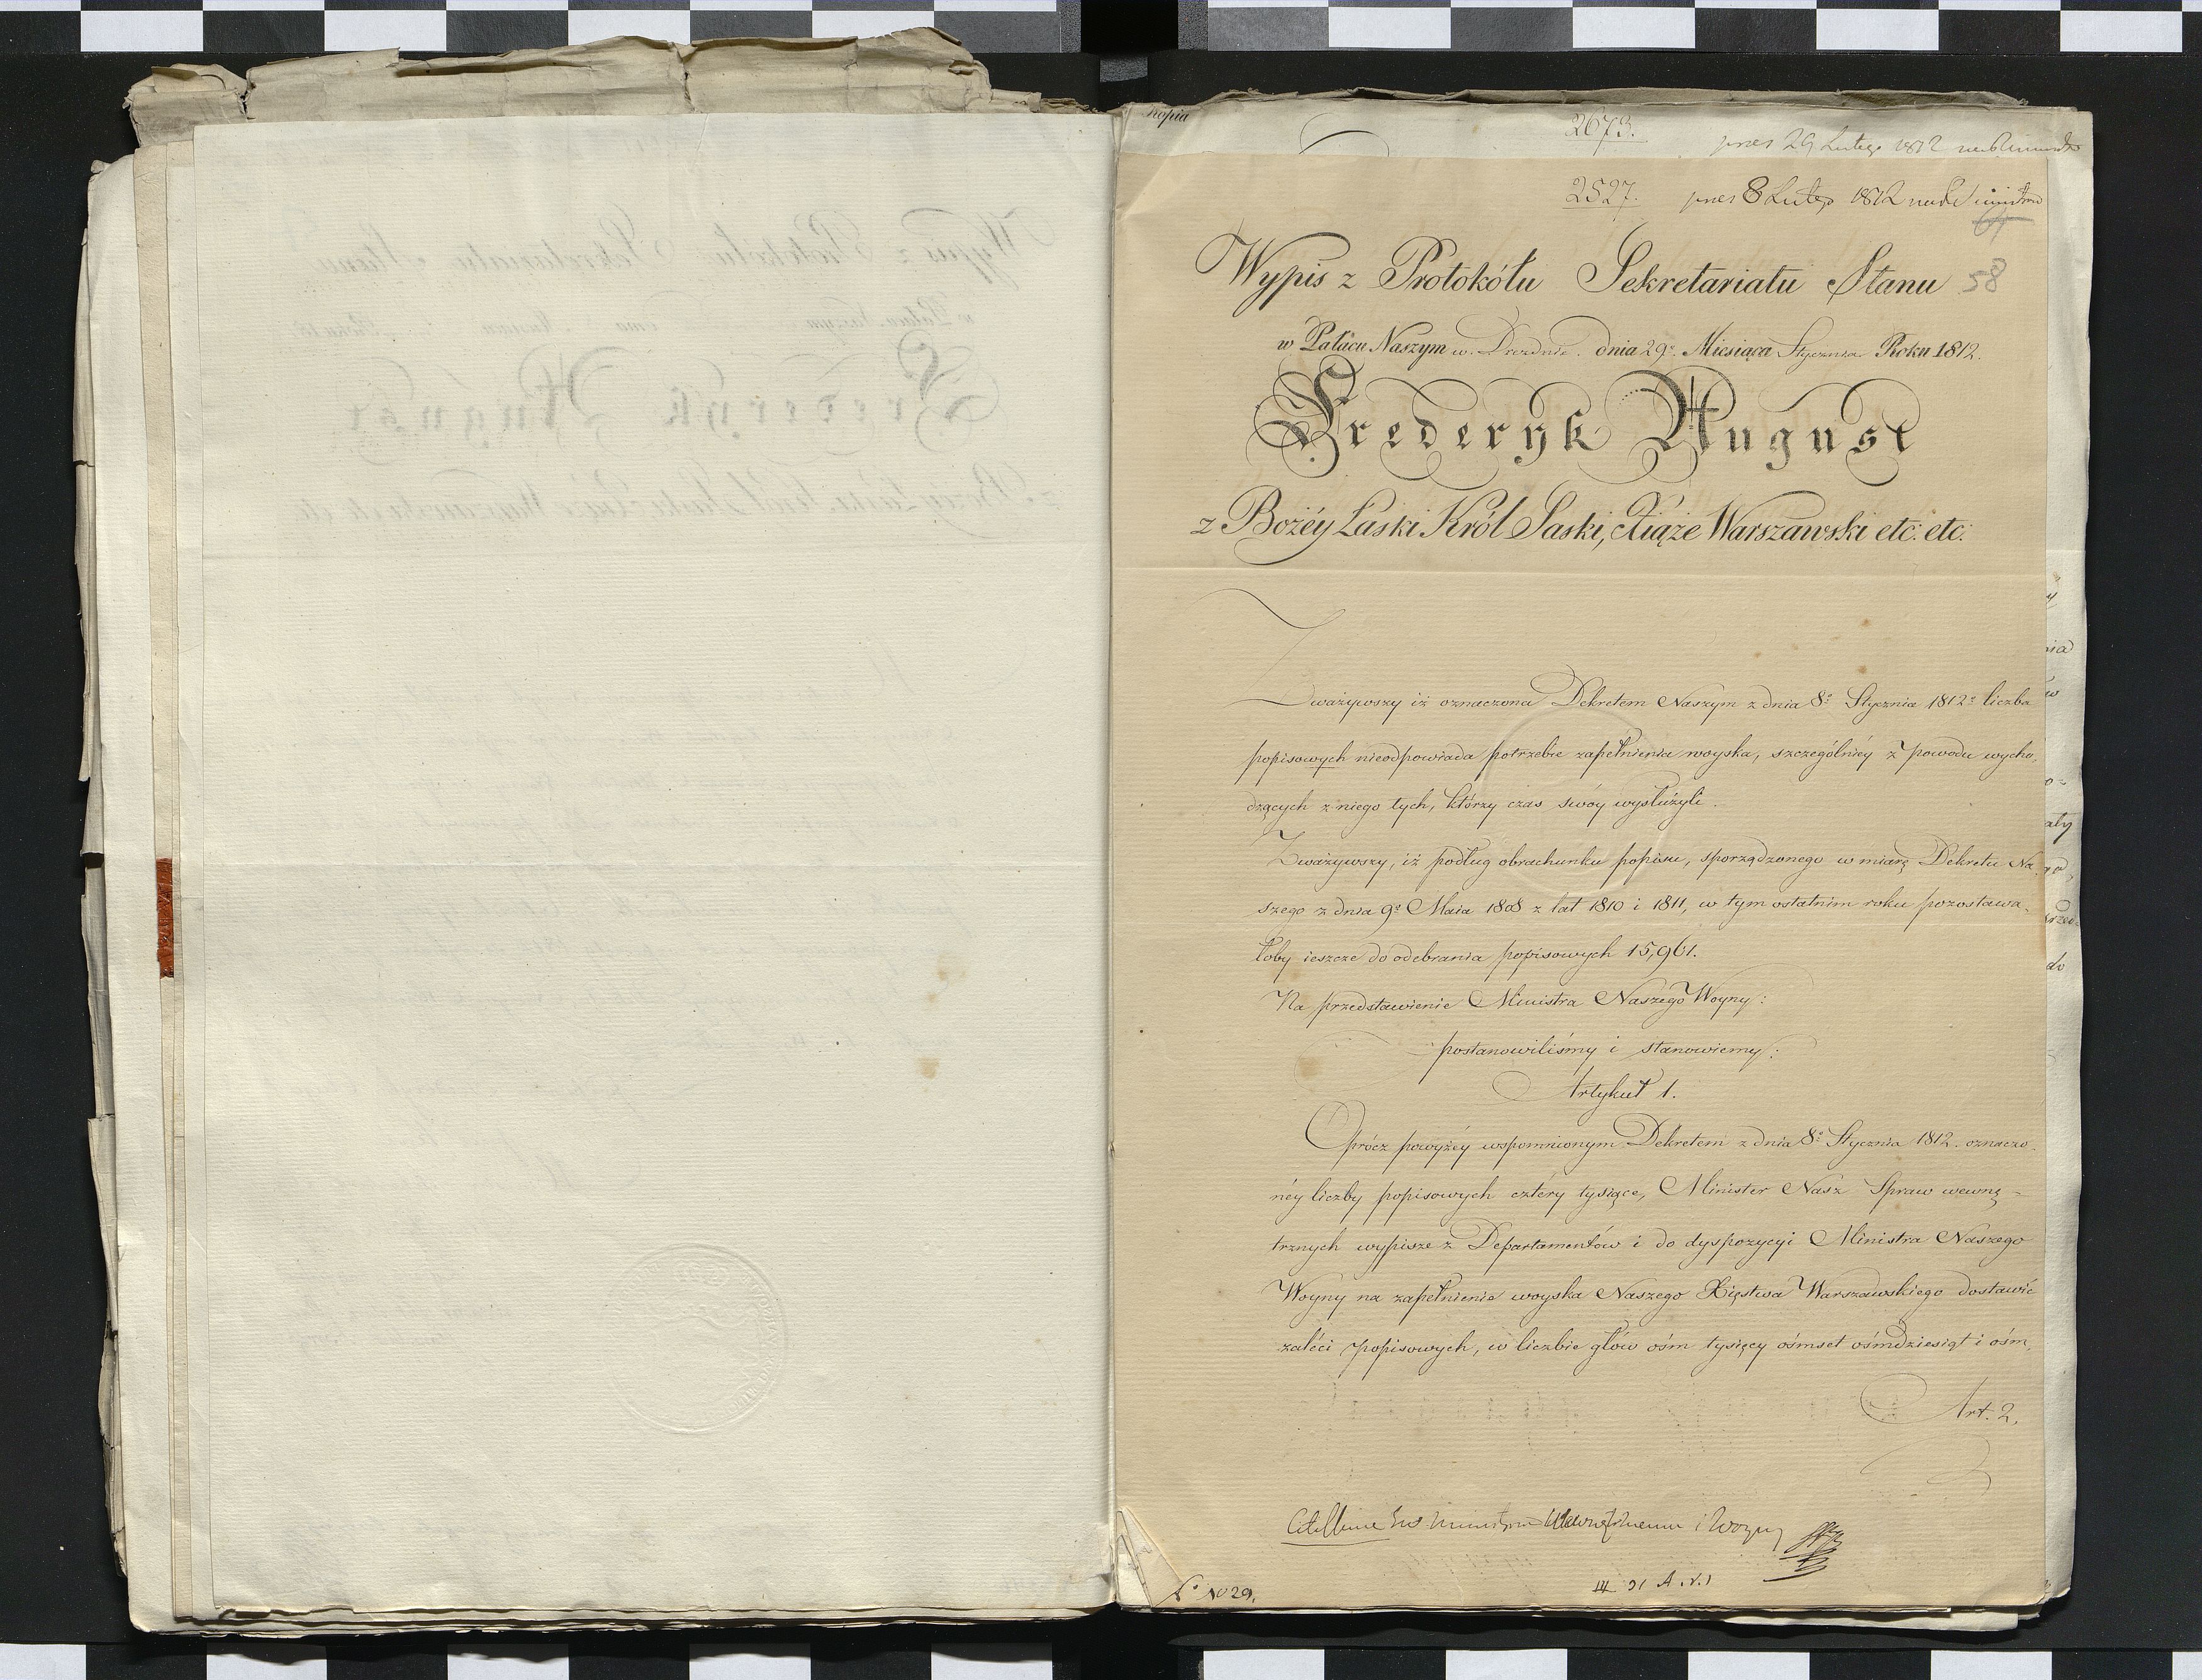 Kopia
2673.
pres 29 Lutego 1812
2527. pres 8 Lutego 1812
Wypis z Protokółu Sekretariatu Stanu 58
w Pałacu Naszym w Dreznie dnia 29º Miesiąca Stycznia Roku 1812.
Frederyk August
z Bożéy Łaski Król Saski, Xiąże Warszawski etc: etc:
Zważywszy iż oznaczona Dekretem Naszym z dnia 8º Stycznia 1812º liczba
popisowych nieodpowiada potrzebie zapełnienia woyska, szczególniéy z powodu wycho-
dzących z niego tych, którzy czas swóy wysłużyli.
Zważywszy, iż podług obrachunku popisu, sporządzonego w miarę Dekretu Na-
szego z dnia 9º Maia 1808 z lat 1810 i 1811, w tym ostatnim roku pozostawa-
łoby ieszcze do odebrania popisowych 15,961.
Na przedstawienie Ministra Naszego Woyny:
postanowiliśmy i stanowiemy:
Artykuł 1.
Oprócz powyżéy wspomnionym Dekretem z dnia 8º Stycznia 1812. oznaczo-
néy liczby popisowych cztéry tysiące, Minister Nasz Spraw wewnę-
trznych wypisze z Departamentów i do dyspozycyi Ministra Naszego
Woyny na zapełnienie woyska Naszego Xięstwa Warszawskiego dostawić
zaléci popisowych, w liczbie głów ośm tysięcy ośmset ośmdziesiąt i ośm,
Art. 2,
i Woyny
No 29.